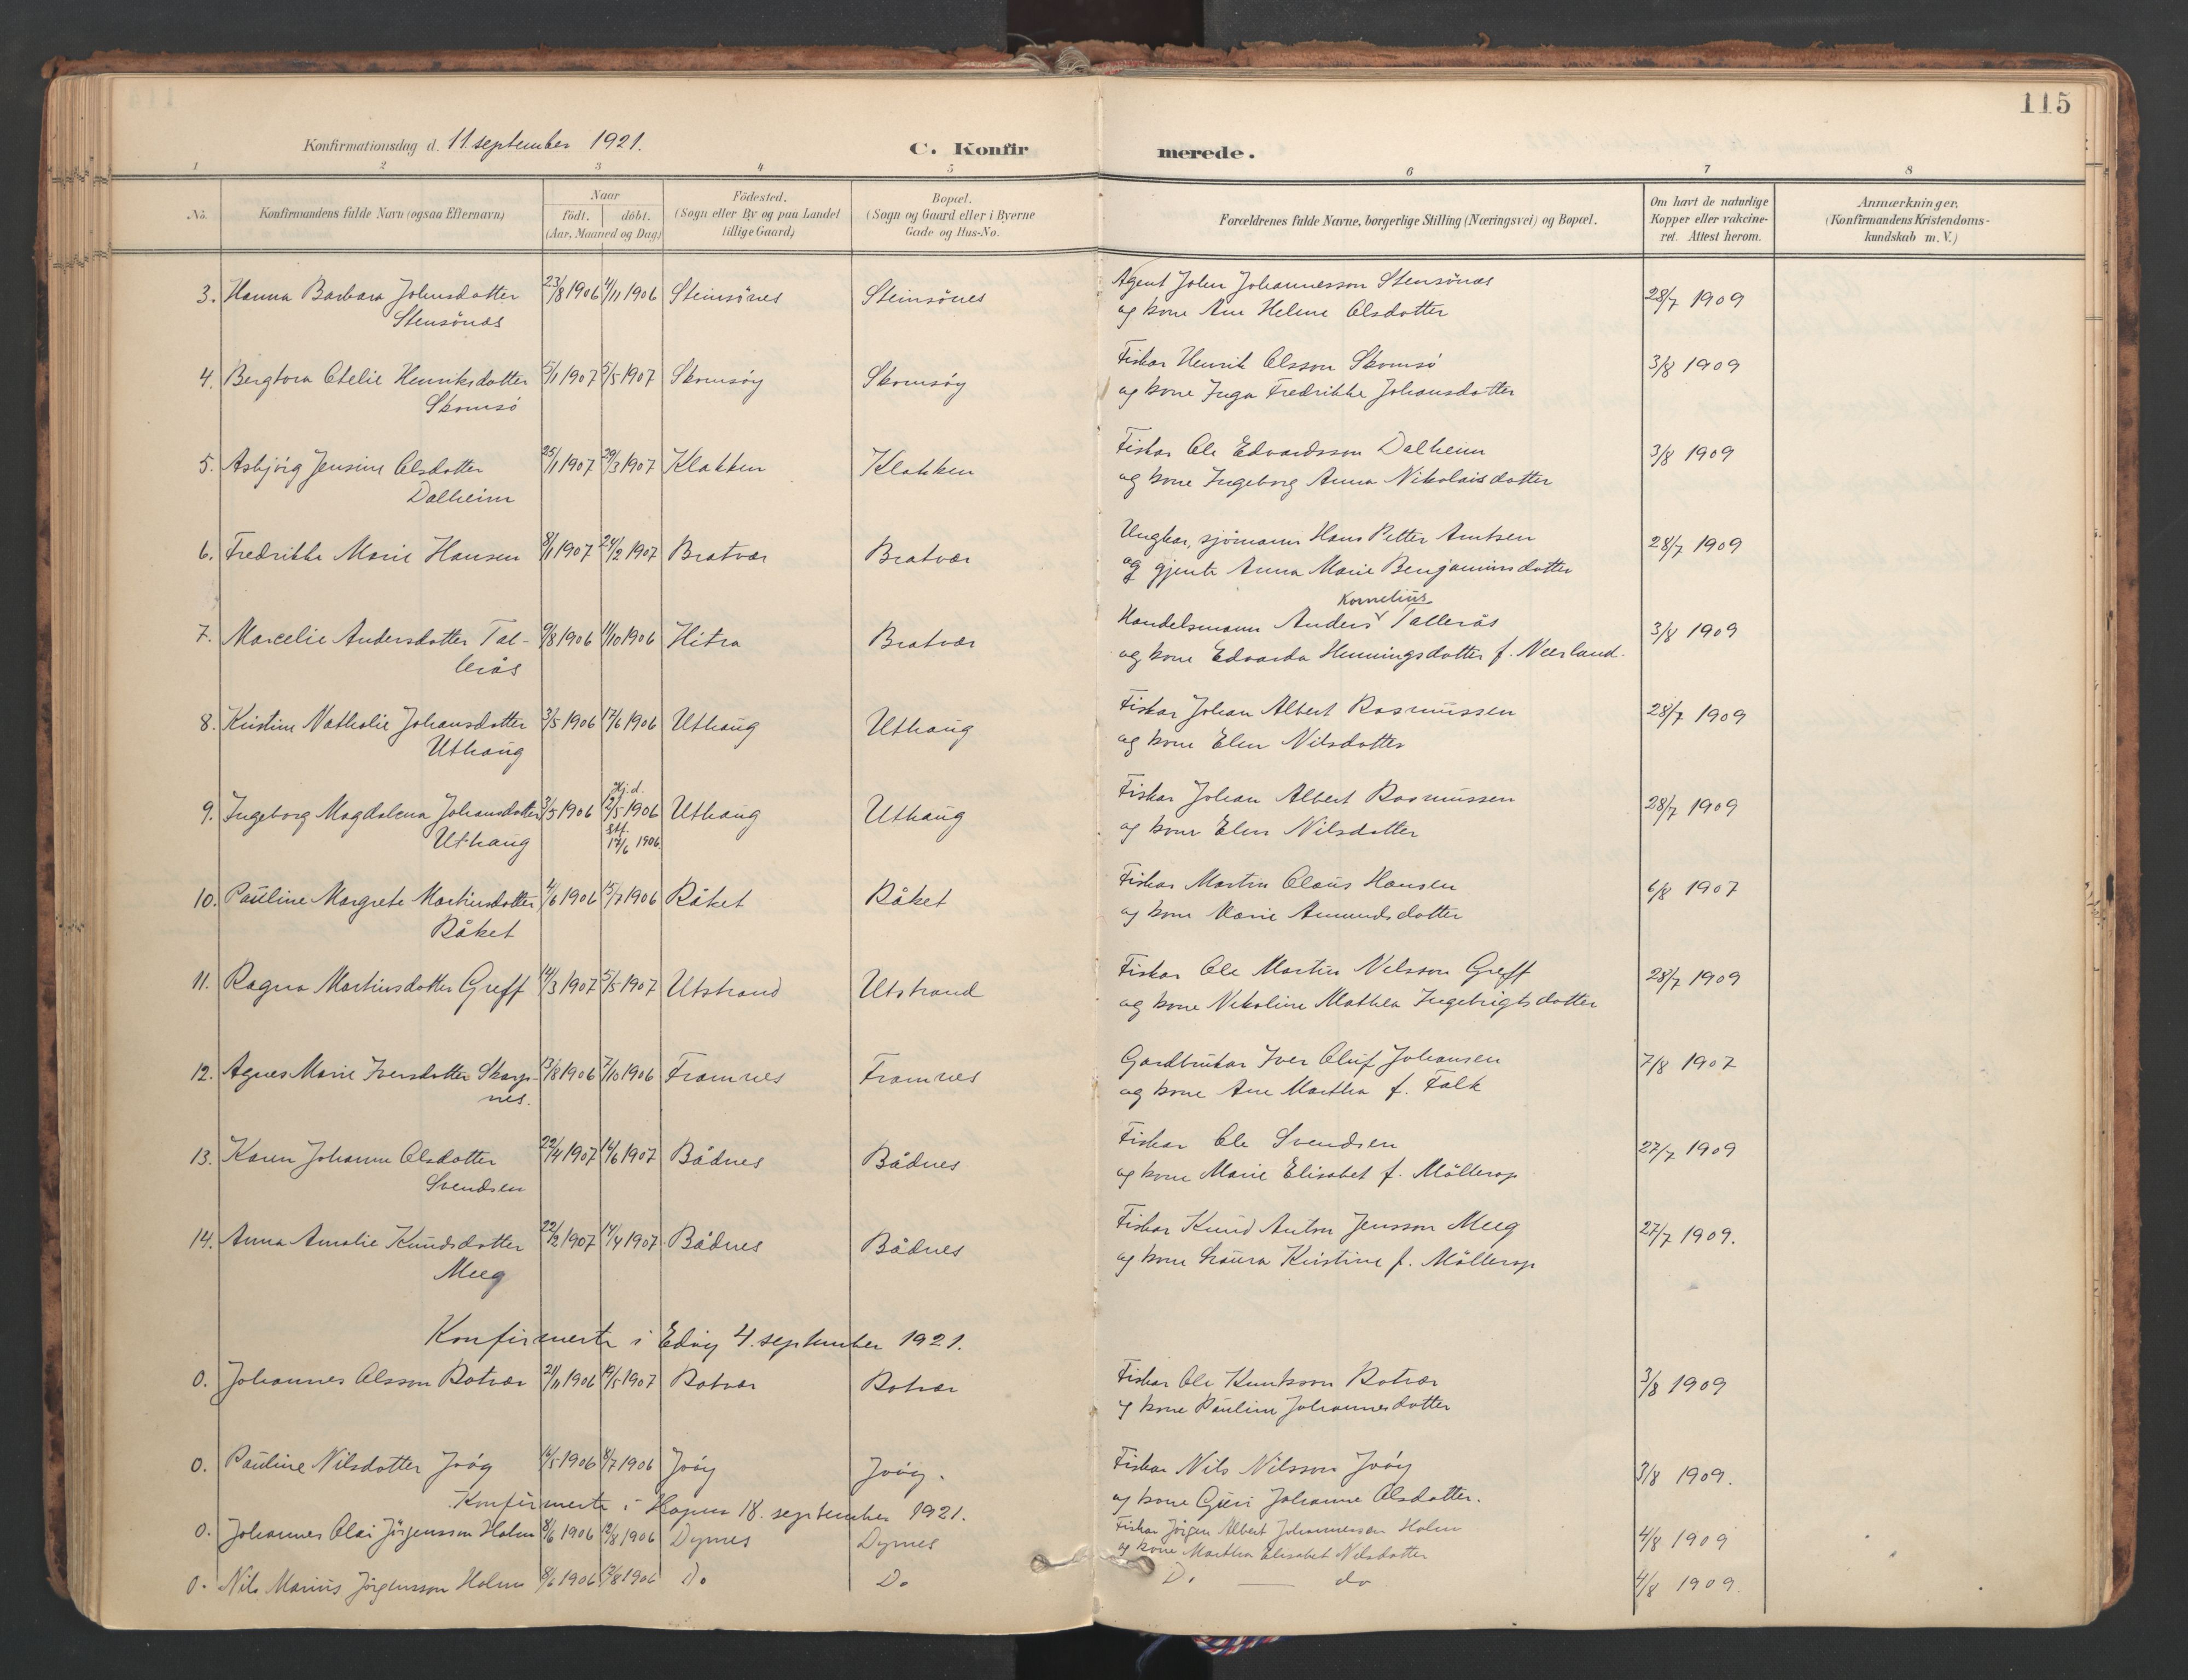 115
Konfirmationsdag d. 11. september 1921.
C. Konfirmerede.
1 2 3 4 5 6 7 8
No. Konfirmandens fulde Navn (ogsaa Efternavn) Naar födt. döbt. (Aar, Maaned og Dag) Födested. (Sogn eller By og paa Landet tillige Gaard) Bopæl. (Sogn og Gaard eller i Byerne Gade og Hus-No. Forældrenes fulde Navne, borgerlige Stilling (Næringsvei) og Bopæl. Om havt de naturlige Kopper eller vakcineret. Attest herom. Anmærkninger. (Konfirmandens Kristendomskundskab m. V.)
3. Hanna Barbara Johnsdotter 23/8 1906 4/11 1906 Steinsönes Steinsönes Agent John Johannesson Stensönes 28/7 1909
Stensönes og kone Ane Helene Olsdotter
4. Bergtora Otelie Henriksdotter 5/1 1907 5/5 1907 Skomsöy Skomsöy Fiskar Henrik Olsson Skomsö 3/8 1909
Skomsö og kone Inga Fredrikke Johansdotter
5. Asbjörg Jensine Olsdotter 25/1 1907 29/3 1907 Klakken Klakken Fiskar Ole Edvardsson Dalheim 3/8 1909
Dalheim og kone Ingeborg Anna Nikolaisdotter
6. Fredrikke Marie Hansen 8/1 1907 24/2 1907 Bratvær Bratvær Ungkar, sjömann Hans Petter Arntsen 28/7 1909
og gjente Anna Marie Benjaminsdotter
Kornelius
7. Marcelie Andersdotter Tal- 9/8 1906 11/10 1906 Hitra Bratvær Handelsmann Anders Tallerås 3/8 1909
lerås og kone Edvarda Henningsdotter f. Neerland
8. Kristine Nathalie Johansdotter 3/5 1906 17/6 1906 Uthaug Uthaug Fiskar Johan Albert Rasmussen 28/7 1909
Uthaug og kone Elen Nilsdotter
Hj.d.
9. Ingeborg Magdalena Johansdotter 3/5 1906 12/5 1906 Uthaug Uthaug Fiskar Johan Albert Rasmussen 28/7 1909
Uthaug stf. 17/6 1906. og kone Elen Nilsdotter
10. Pauline Margrete Martinsdotter 4/6 1906 15/7 1906 Råket Råket Fiskar Martin Olaus Hansen 6/8 1907
Råket og kone Marie Amundsdotter
11. Ragna Martinsdotter Greff 14/3 1907 5/5 1907 Utstrand Utstrand Fiskar Ole Martin Nelsson Greff 28/7 1909
og kone Nikoline Mathea Ingebrigtsdotter
12. Agnes Marie Iversdotter Skarp- 13/8 1906 7/10 1906 Framnes Framnes Gardbrukar Iver Oluf Johansen 7/8 1907
nes. og kone Ane Martha f. Falk
13. Karen Johanne Olsdotter 22/4 1907 16/6 1907 Bådnes Bådnes Fiskar Ole Svendsen 27/7 1909
Svendsen og kone Marie Elisabet f. Möllerop
14. Anna Amalie Knudsdotter 22/2 1907 14/4 1907 Bådnes Bådnes Fiskar Knud Anton Jensson Meeg 27/7 1909.
Meeg og kone Laura Kristine f. Möllerop
Konfirmerte i Edöy 4. september 1921.
0. Johannes Olsson Rotvær 21/11 1906 19/5 1907 Rotvær Rotvær Fiskar Ole Knutsson Rotvær 3/8 1909
og kone Pauline Johannesdotter
0. Pauline Nilsdotter Jröy 16/5 1906 8/7 1906 Jröy Jröy. Fiskar Nils Nilsson Jröy 3/8 1909.
og kone Guri Johanne Olsdotter.
Konfirmerte i Hopen 18. september 1921.
0. Johannes Olai Jörgensson Holm 8/6 1906 12/8 1906 Dyrnes Dyrnes Fiskar Jörgen Albert Johannessen Holm 4/8 1909
og kone Martha Elisabet Nilsdotter
0. Nils Marius Jörgensson Holm 8/6 1906 12/8 1906 Do Do Do — do 4/8 1909.